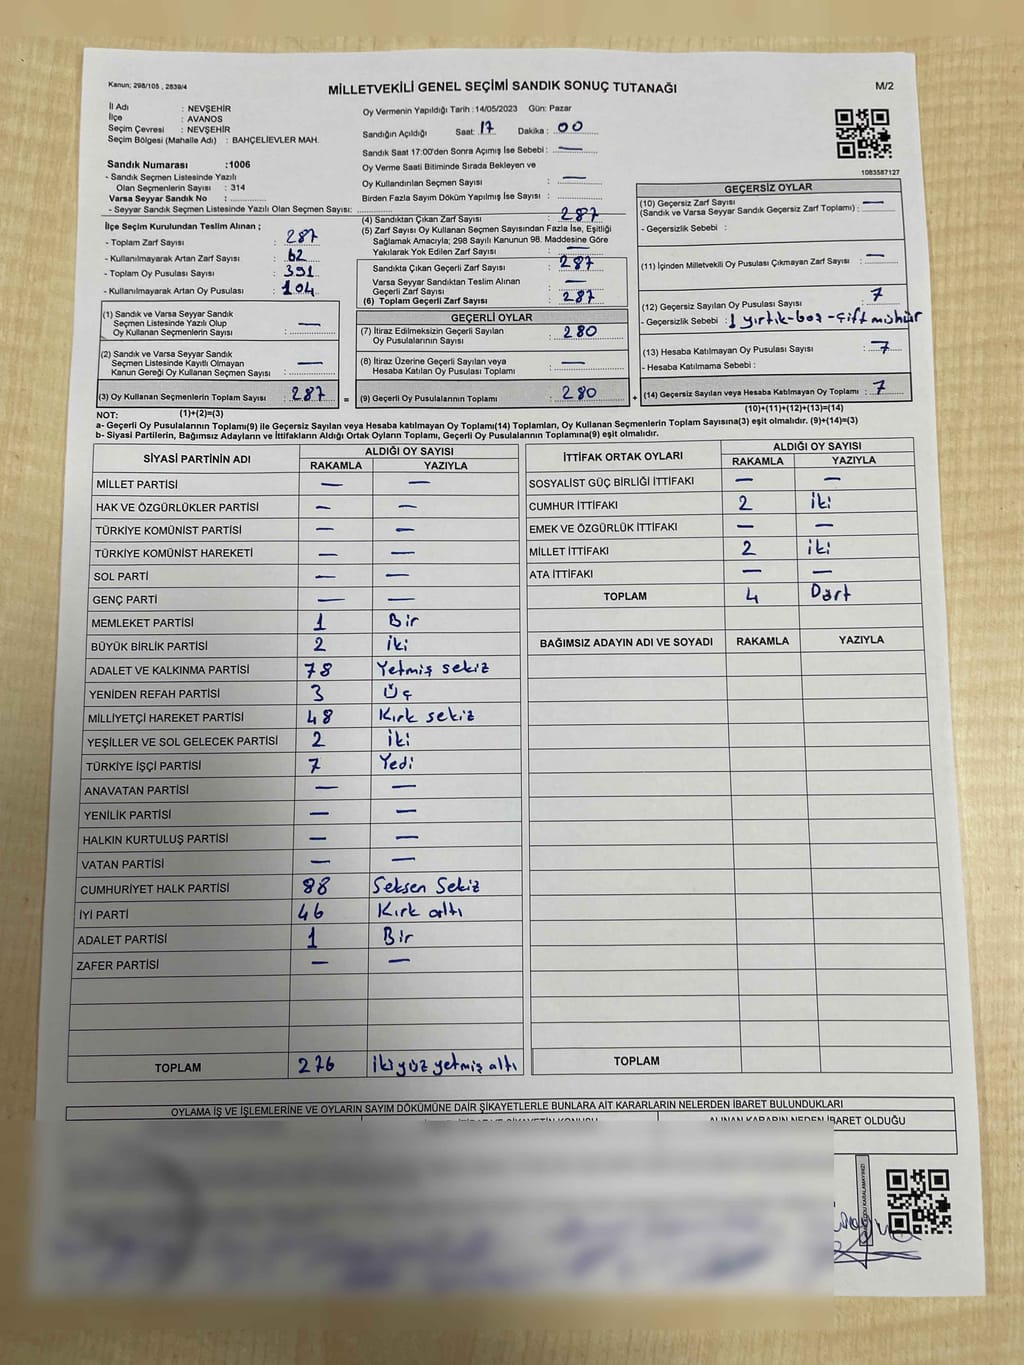 Kanun; 298/105 , 2839/4
MİLLETVEKİLİ GENEL SEÇİMİ SANDIK SONUÇ TUTANAĞI
M/2
İl Adı : NEVŞEHİR
İlçe : AVANOS
Seçim Çevresi : NEVŞEHİR
Seçim Bölgesi (Mahalle Adı) : BAHÇELİEVLER MAH.
Sandık Numarası :1006
- Sandık Seçmen Listesinde Yazılı
Olan Seçmenlerin Sayısı : 314
Varsa Seyyar Sandık No :
- Seyyar Sandık Seçmen Listesinde Yazılı Olan Seçmen Sayısı:
İlçe Seçim Kurulundan Teslim Alınan ;
- Toplam Zarf Sayısı : 287
- Kullanılmayarak Artan Zarf Sayısı : 62
- Toplam Oy Pusulası Sayısı : 391
- Kullanılmayarak Artan Oy Pusulası : 104
(1) Sandık ve Varsa Seyyar Sandık
Seçmen Listesinde Yazılı Olup
Oy Kullanan Seçmenlerin Sayısı : —
(2) Sandık ve Varsa Seyyar Sandık
Seçmen Listesinde Kayıtlı Olmayan
Kanun Gereği Oy Kullanan Seçmen Sayısı : —
(3) Oy Kullanan Seçmenlerin Toplam Sayısı : 287 =
(1)+(2)=(3)
Oy Vermenin Yapıldığı Tarih : 14/05/2023 Gün: Pazar
Sandığın Açıldığı Saat: 17 Dakika : 00
Sandık Saat 17:00'den Sonra Açımış İse Sebebi : —
Oy Verme Saati Bitiminde Sırada Bekleyen ve
Oy Kullandırılan Seçmen Sayısı : —
Birden Fazla Sayım Döküm Yapılmış İse Sayısı :
(4) Sandıktan Çıkan Zarf Sayısı : 287
(5) Zarf Sayısı Oy Kullanan Seçmen Sayısından Fazla İse, Eşitliği
Sağlamak Amacıyla; 298 Sayılı Kanunun 98. Maddesine Göre
Yakılarak Yok Edilen Zarf Sayısı : —
Sandıkta Çıkan Geçerli Zarf Sayısı : 287
Varsa Seyyar Sandıktan Teslim Alınan
Geçerli Zarf Sayısı : —
(6) Toplam Geçerli Zarf Sayısı : 287
GEÇERLİ OYLAR
(7) İtiraz Edilmeksizin Geçerli Sayılan
Oy Pusulalarının Sayısı : 280
(8) İtiraz Üzerine Geçerli Sayılan veya
Hesaba Katılan Oy Pusulası Toplamı : —
(9) Geçerli Oy Pusulalarının Toplamı : 280 +
1083587127
GEÇERSİZ OYLAR
(10) Geçersiz Zarf Sayısı
(Sandık ve Varsa Seyyar Sandık Geçersiz Zarf Toplamı) : —
- Geçersizlik Sebebi :
(11) İçinden Milletvekili Oy Pusulası Çıkmayan Zarf Sayısı : —
(12) Geçersiz Sayılan Oy Pusulası Sayısı : 7
- Geçersizlik Sebebi : 1 yırtık-boş-çift mühür
(13) Hesaba Katılmayan Oy Pusulası Sayısı : 7
- Hesaba Katılmama Sebebi :
(14) Geçersiz Sayılan veya Hesaba Katılmayan Oy Toplamı : 7
(10)+(11)+(12)+(13)=(14)
NOT:
a- Geçerli Oy Pusulalarının Toplamı(9) ile Geçersiz Sayılan veya Hesaba katılmayan Oy Toplamı(14) Toplamları, Oy Kullanan Seçmenlerin Toplam Sayısına(3) eşit olmalıdır. (9)+(14)=(3)
b- Siyasi Partilerin, Bağımsız Adayların ve İttifakların Aldığı Ortak Oyların Toplamı, Geçerli Oy Pusulalarının Toplamına(9) eşit olmalıdır.
SİYASİ PARTİNİN ADI ALDIĞI OY SAYISI
RAKAMLA YAZIYLA
MİLLET PARTİSİ — —
HAK VE ÖZGÜRLÜKLER PARTİSİ — —
TÜRKİYE KOMÜNİST PARTİSİ — —
TÜRKİYE KOMÜNİST HAREKETİ — —
SOL PARTİ — —
GENÇ PARTİ — —
MEMLEKET PARTİSİ 1 Bir
BÜYÜK BİRLİK PARTİSİ 2 iki
ADALET VE KALKINMA PARTİSİ 78 Yetmiş sekiz
YENİDEN REFAH PARTİSİ 3 Üç
MİLLİYETÇİ HAREKET PARTİSİ 48 Kırk sekiz
YEŞİLLER VE SOL GELECEK PARTİSİ 2 iki
TÜRKİYE İŞÇİ PARTİSİ 7 Yedi
ANAVATAN PARTİSİ — —
YENİLİK PARTİSİ — —
HALKIN KURTULUŞ PARTİSİ — —
VATAN PARTİSİ — —
CUMHURİYET HALK PARTİSİ 88 Seksen Sekiz
İYİ PARTİ 46 Kırk altı
ADALET PARTİSİ 1 Bir
ZAFER PARTİSİ — —
TOPLAM 276 ikiyüz yetmiş altı
İTTİFAK ORTAK OYLARI ALDIĞI OY SAYISI
RAKAMLA YAZIYLA
SOSYALİST GÜÇ BİRLİĞİ İTTİFAKI — —
CUMHUR İTTİFAKI 2 iki
EMEK VE ÖZGÜRLÜK İTTİFAKI — —
MİLLET İTTİFAKI 2 iki
ATA İTTİFAKI — —
TOPLAM 4 Dört
BAĞIMSIZ ADAYIN ADI VE SOYADI RAKAMLA YAZIYLA
TOPLAM
OYLAMA İŞ VE İŞLEMLERİNE VE OYLARIN SAYIM DÖKÜMÜNE DAİR ŞİKAYETLERLE BUNLARA AİT KARARLARIN NELERDEN İBARET BULUNDUKLARI
ALINAN KARARIN NEDEN İBARET OLDUĞU